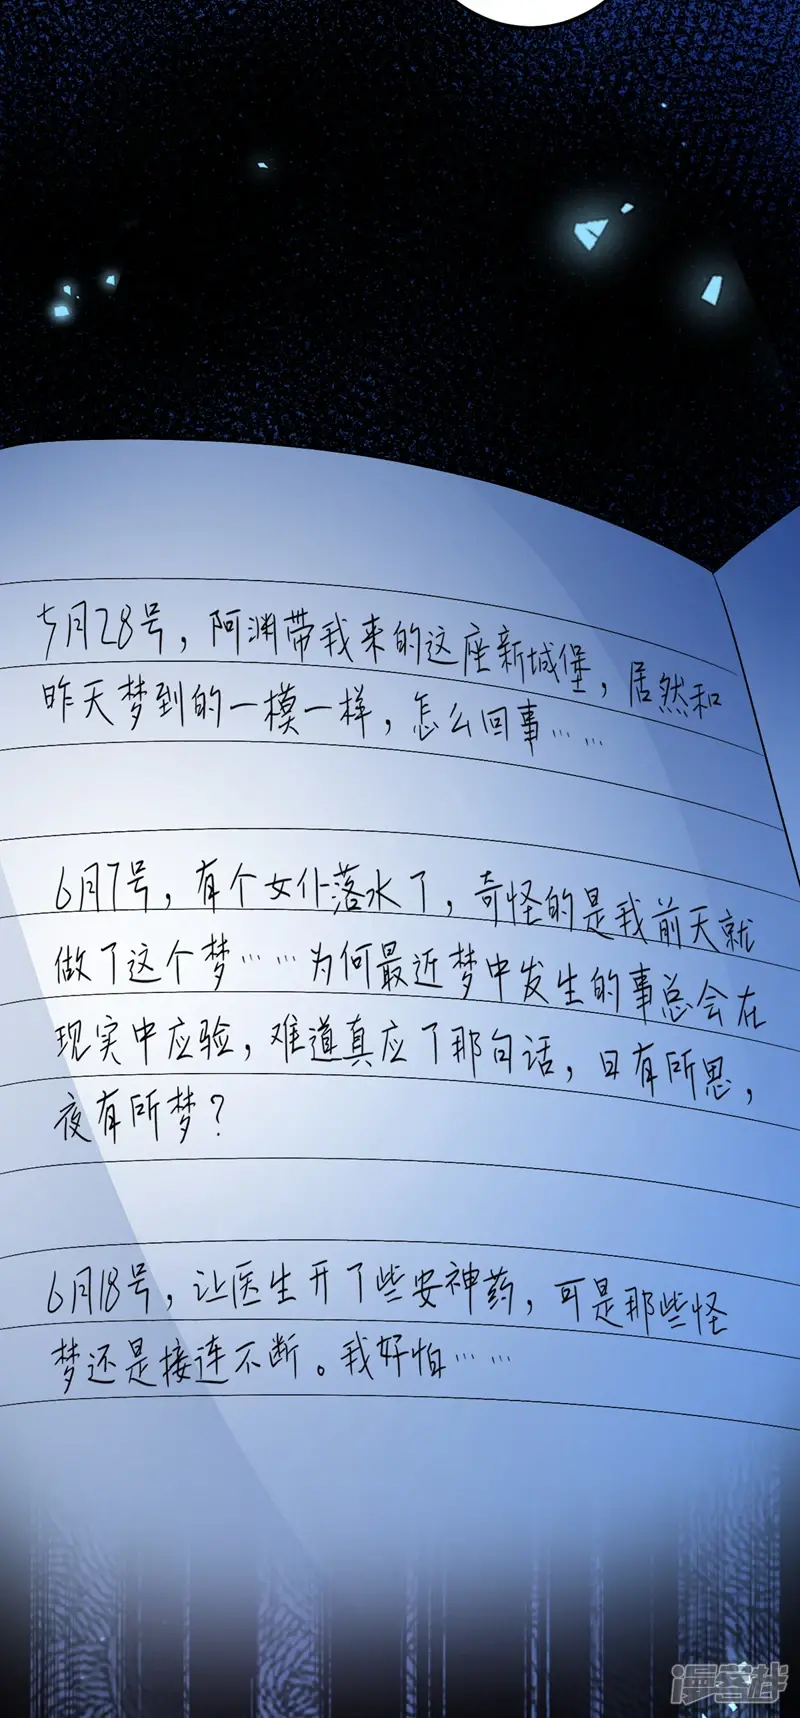 5月28号，阿渊带我来的这座新城堡，居然和
昨天梦到的一模一样，怎么回事……
6月7号，有个女仆落水了，奇怪的是我前天就
做了这个梦……为何最近梦中发生的事总会在
现实中应验，难道真应了那句话，日有所思，
夜有所梦？
6月18号，让医生开了些安神药，可是那些怪
梦还是接连不断。我好怕……
漫客栈